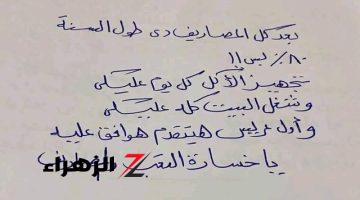 بعد كل المصاريف دى طول السنة
٨٠٪ بس !!
تجهيز الأكل كل يوم عليكى
وشغل البيت كله عليكى
وأول عريس هيتقدم هوافق عليه
يا خسارة التعب
الزهراء